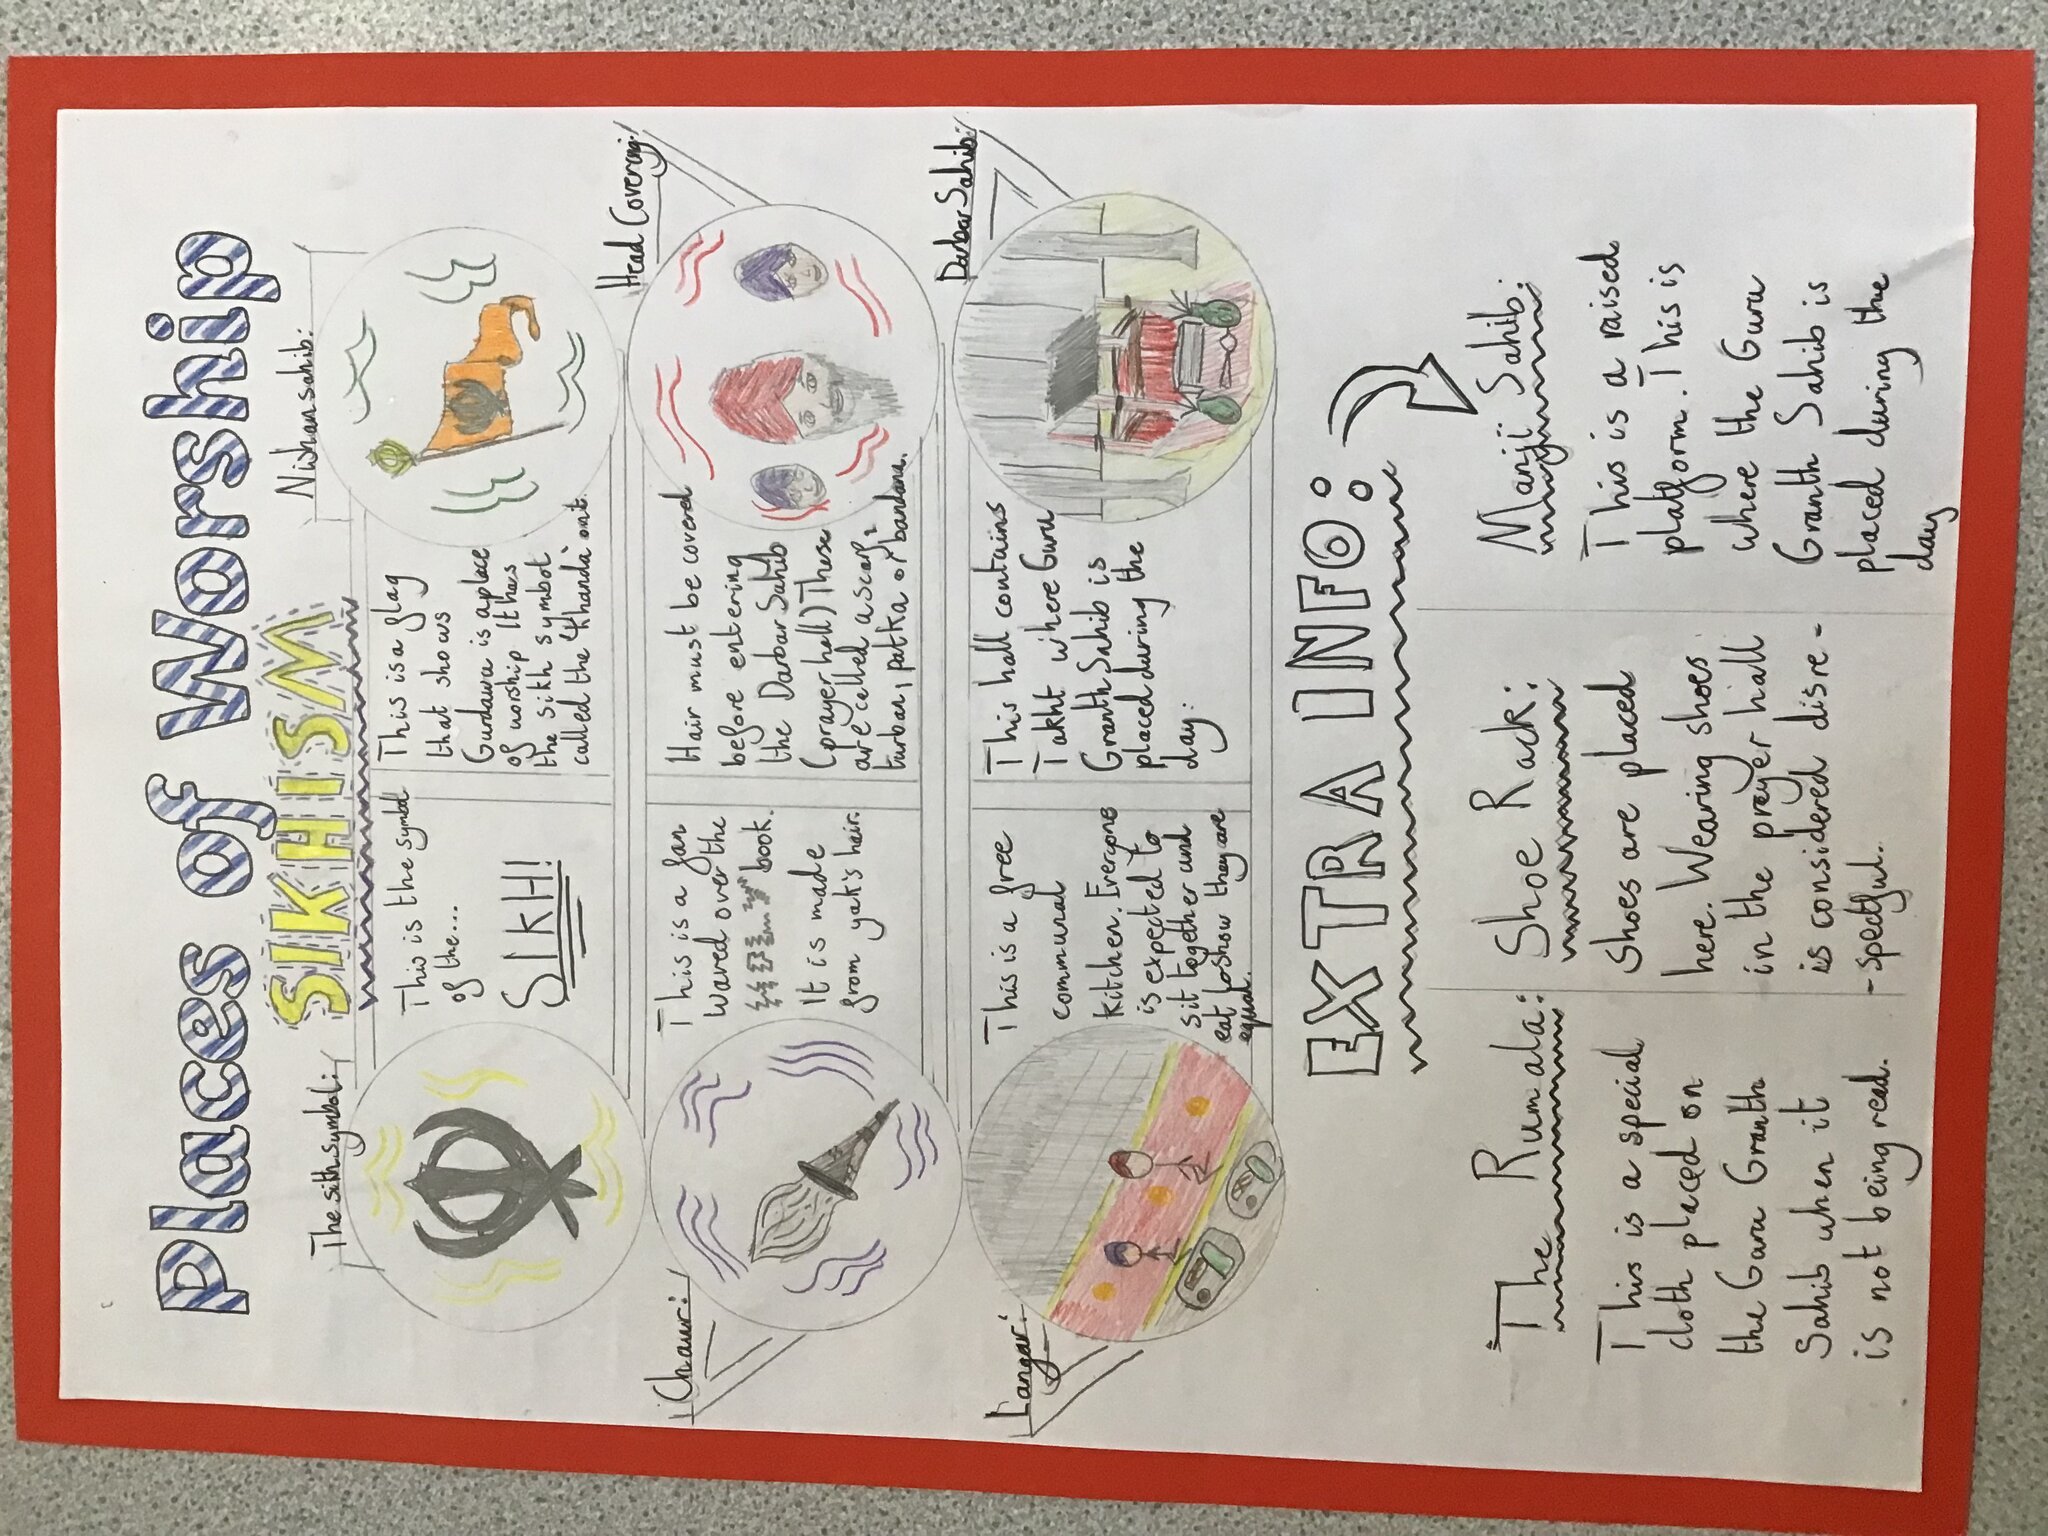 Places of Worship
SIKHISM
The sikh symbol:
This is the symbol
of the...
SIKH!
Nishan sahib:
This is a flag
that shows
Gurdawa is a place
of worship It has
the sikh symbol
called the 'Khanda' ont.
Chauri:
This is a fan
waved over the
book.
It is made
from yak's hair.
Head Covering:
Hair must be covered
before entering
the Darbar Sahib
(prayer hall) These
are called a scarf,
turban, patka or bandana.
Langar:
This is a free
communal
kitchen. Everyone
is expected to
sit together and
eat to show they are
equal.
Darbar Sahib:
This hall contains
Takht where Guru
Granth Sahib is
placed during the
day:
EXTRA INFO:
The Rumala:
This is a special
cloth placed on
the Guru Granth
Sahib when it
is not being read.
Shoe Rack:
Shoes are placed
here. Wearing shoes
in the prayer hall
is considered disre-
-spectful.
Manji Sahib:
This is a raised
platform. This is
where the Guru
Granth Sahib is
placed during the
day